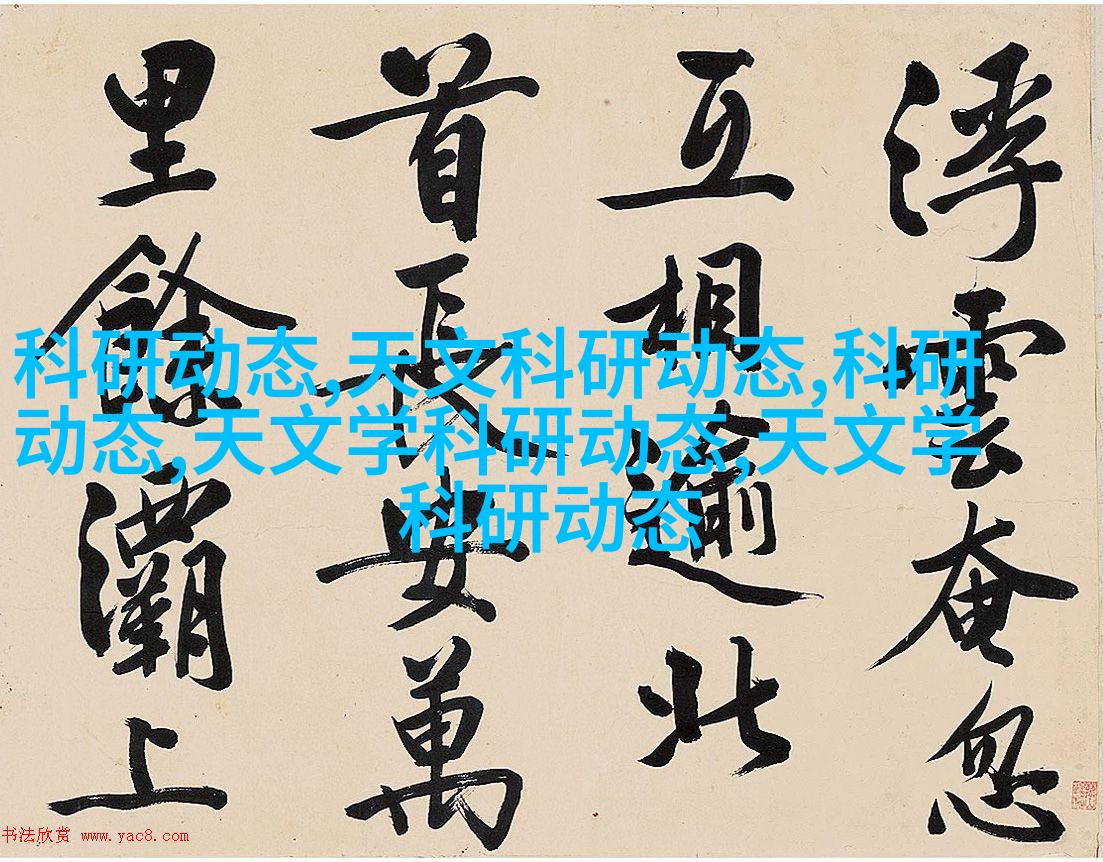 浮雲奄忽
互相逾北
首長安萬
里餘灞上
科研动态,天文科研动态,科研
动态,天文学科研动态,天文学
科研动态
书法欣赏 www.yac8.com